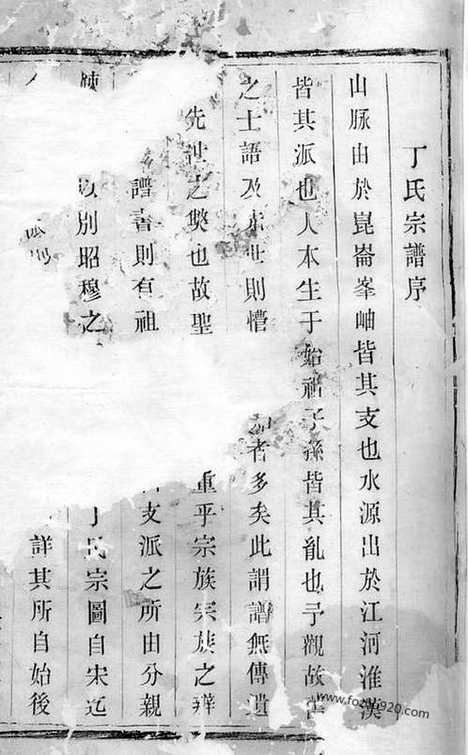 丁氏宗譜序
山脉由於崑崙峯岫皆其支也水源出於江河淮漢
皆其派也人本生于始祖子孫皆其亂也予觀故
之士語及 世則懵 者多矣此謂譜無傳遺
先世之獘也故聖 重乎宗族宗族之辨
譜書則有祖 支派之所由分親
別昭穆之 丁氏宗圖自宋迄
詳其所自始後